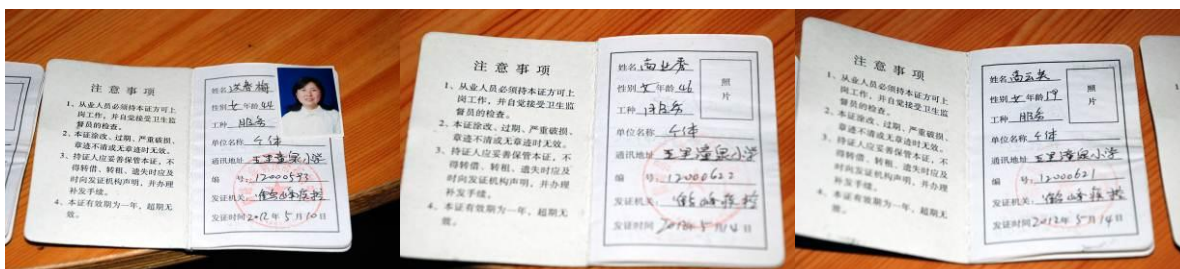 注意事项
1、从业人员必须持本证方可上
岗工作，并自觉接受卫生监
督员的检查。
2、本证涂改、过期、严重破损、
章迹不清或无章迹时无效。
3、持证人应妥善保管本证，不
得转借、转租，遗失时应及
时向发证机构声明，并办理
补发手续。
4、本证有效期为一年，超期无
效。
姓名
性别 女 年龄 44
工种 服务
单位名称 个体
通讯地址 五里潼泉小学
编号：12000593
发证机关：
发证时间 2012年5月10日
注意事项
1、从业人员必须持本证方可上
岗工作，并自觉接受卫生监
督员的检查。
2、本证涂改、过期、严重破损、
章迹不清或无章迹时无效。
3、持证人应妥善保管本证，不
得转借、转租，遗失时应及
时向发证机构声明，并办理
补发手续。
4、本证有效期为一年，超期无
效。
姓名
照片
性别 女 年龄 46
工种 服务
单位名称 个体
通讯地址 五里潼泉小学
编号：12000622
发证机关：
发证时间 2012年5月14日
注意事项
1、从业人员必须持本证方可上
岗工作，并自觉接受卫生监
督员的检查。
2、本证涂改、过期、严重破损、
章迹不清或无章迹时无效。
3、持证人应妥善保管本证，不
得转借、转租，遗失时应及
时向发证机构声明，并办理
补发手续。
4、本证有效期为一年，超期无
效。
姓名
照片
性别 女 年龄 19
工种 服务
单位名称 个体
通讯地址 五里潼泉小学
编号：12000621
发证机关：
发证时间 2012年5月14日